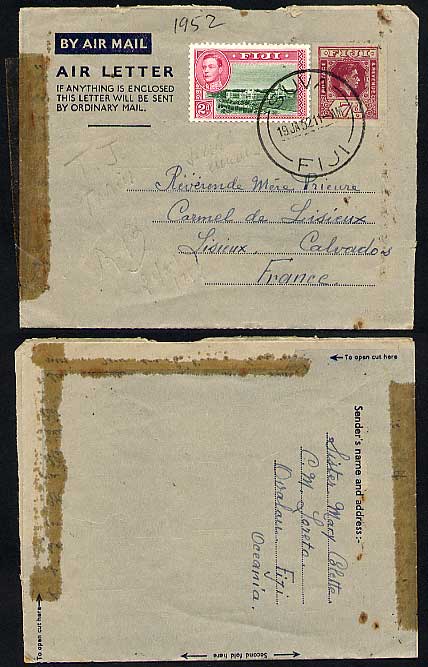 1952
BY AIR MAIL
AIR LETTER
IF ANYTHING IS ENCLOSED
THIS LETTER WILL BE SENT
BY ORDINARY MAIL.
FIJI
2d
FIJI
SUVA
FIJI
Révérende Mère Prieure
Carmel de Lisieux
Lisieux Calvados
France
To open cut here
Sender's name and address:-
Sister Mary Colette
C.M. Loreto
Ovalau Fiji
Oceania.
To open cut here
Second fold here